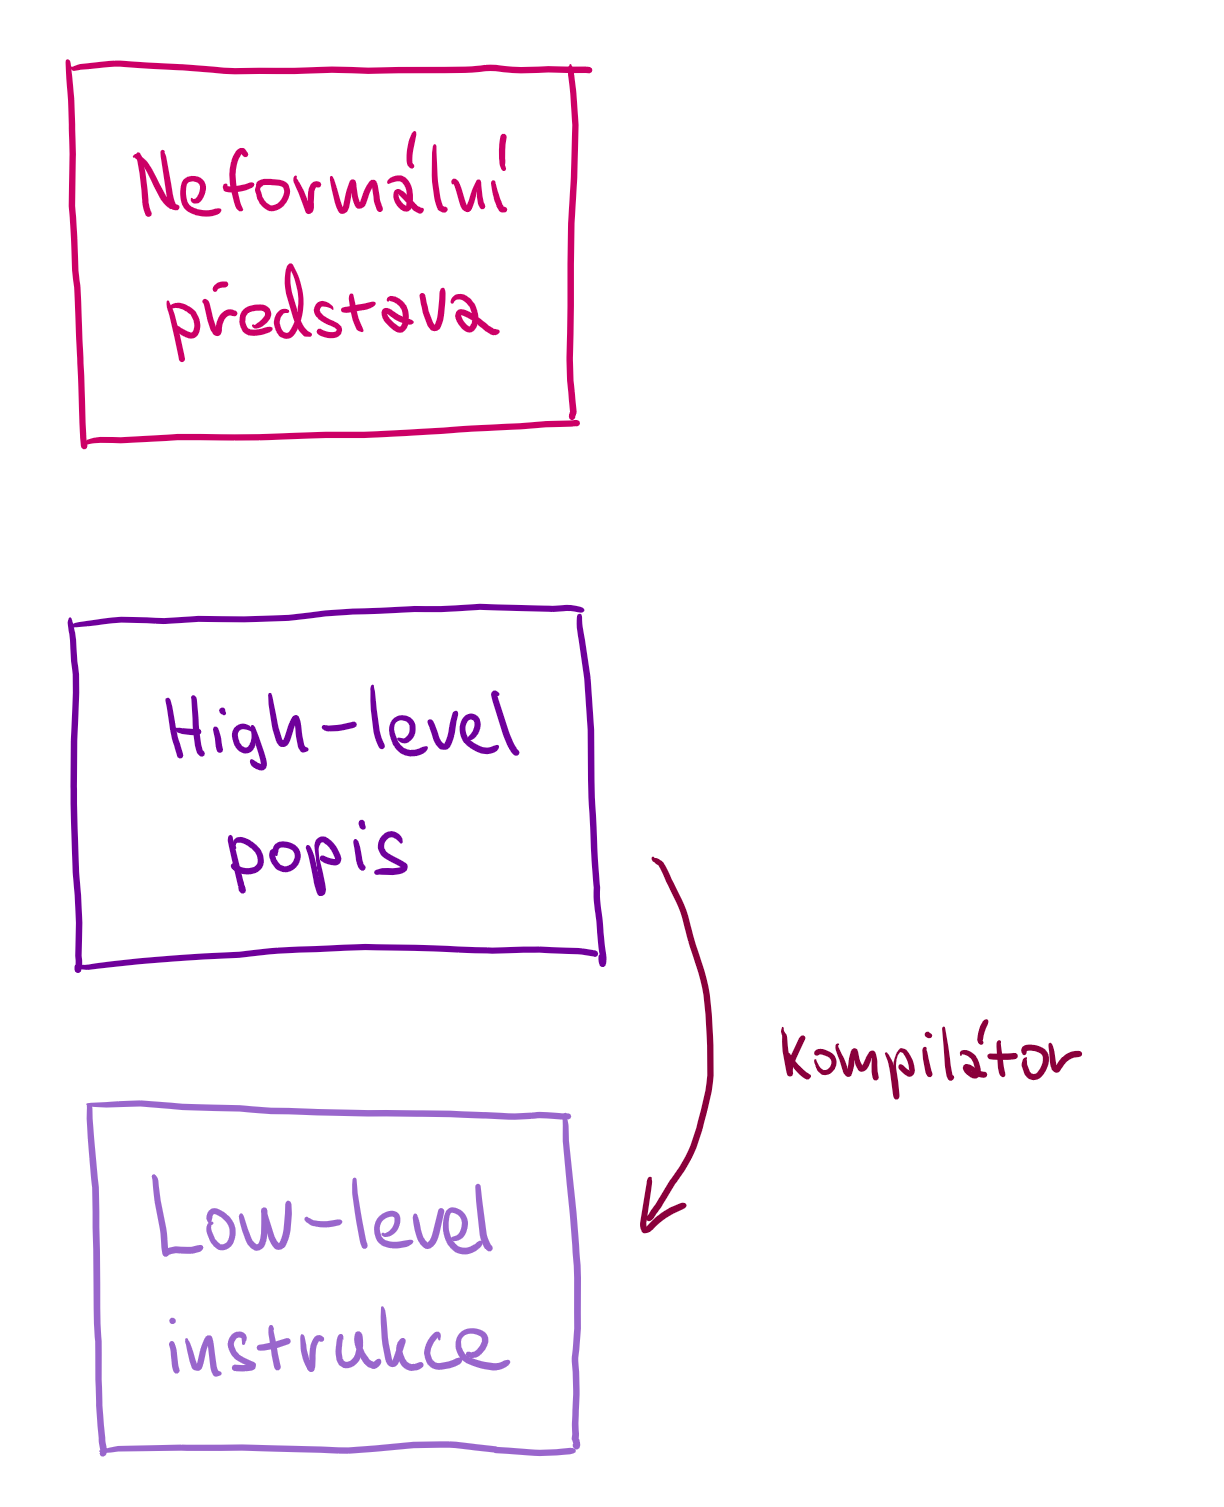 Neformální
představa
High-level
popis
kompilátor
Low-level
instrukce